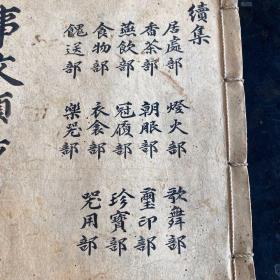 續集
居處部 燈火部 歌舞部
香茶部 朝服部 璽印部
燕飲部 冠履部 珍寶部
食物部 衣衾部 咒用部
餽送部 樂咒部
事文類